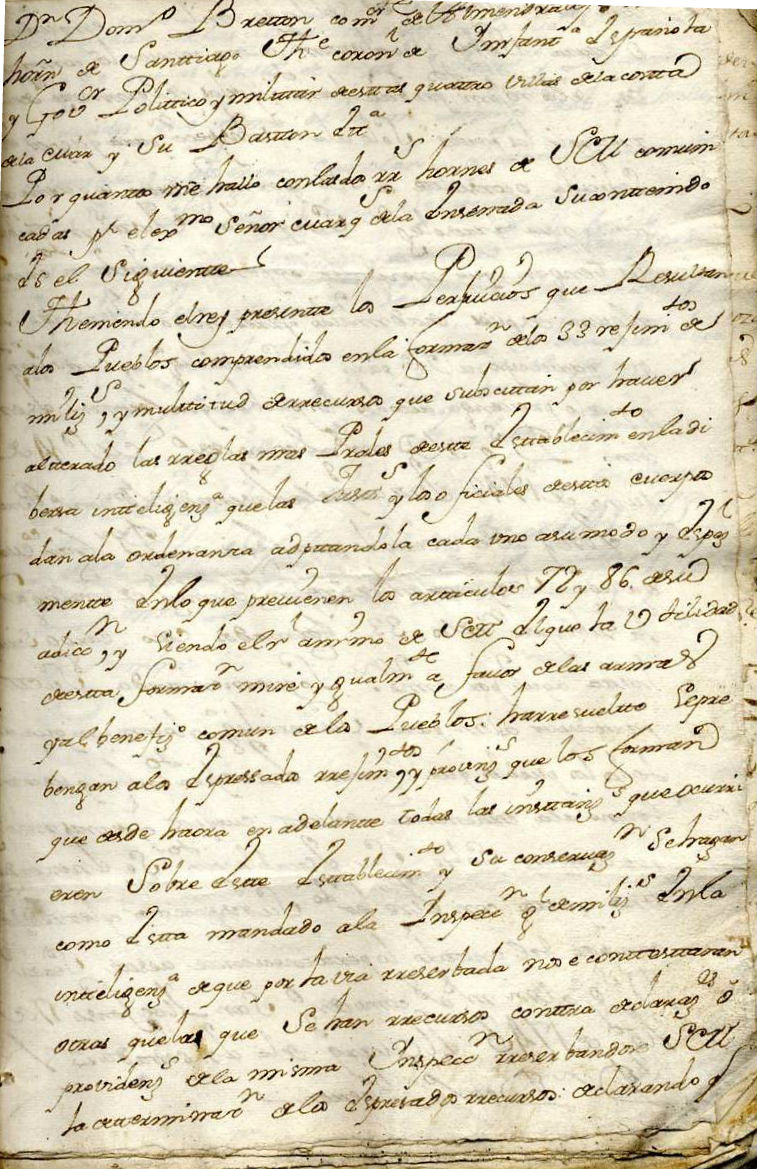 Dn Domo Bretton comr de Almendralejo
horñ de Santtiago Thte coronl de Ynfanta Española
y Govor Polittico y milittar destas quattro villas de la costta
de la Mar y Su Bastton &a
Por quantto me hallo con las dos rrs hornes de SCM comuni
cadas pr el exmo Señor Marqs de la Ensenada Su conttenido
es el Siguientte
Tteniendo el rey presentte los Perjuicios que Resultan
a los Pueblos comprendidos en la formazn de los 33 rejimtos de
milizs, y multtitud de rrecursos que subscittan por haver
altterado las rreglas mas Prales deestte Esttablecimto en la di
bersa inttelijenza que las Justs y los oficiales de estte cuerpo
dan a la ordenanza adpttandola cada uno a su modo y espezl
mentte En lo que previenen los artticulos 72 y 86 de su
adiccn, y Siendo el rl animo de SCM El que la Utilidad
de estta formazn mire ygualmte a favor de las armas
y al benefizo comun de los Pueblos: ha rresueltto Se pre
bengan a los Espressados rrejimtos y provinzs que los forman
que desde haora en adelantte todas las insttanzs que ocurri
eren Sobre Estte Esttablecimto y Su conservazn Se hagan
como Estta mandado a la Ynspeccn gl de milizs En la
inttelijenza de que por la via rreserbada no se conttesttaran
otras que las que Se han rrecursos conttra declarazes ô
providenzs de la misma Ynspeccn rreserbandose SCM
la detterminazn de los Espresados rrecursos: declarando q